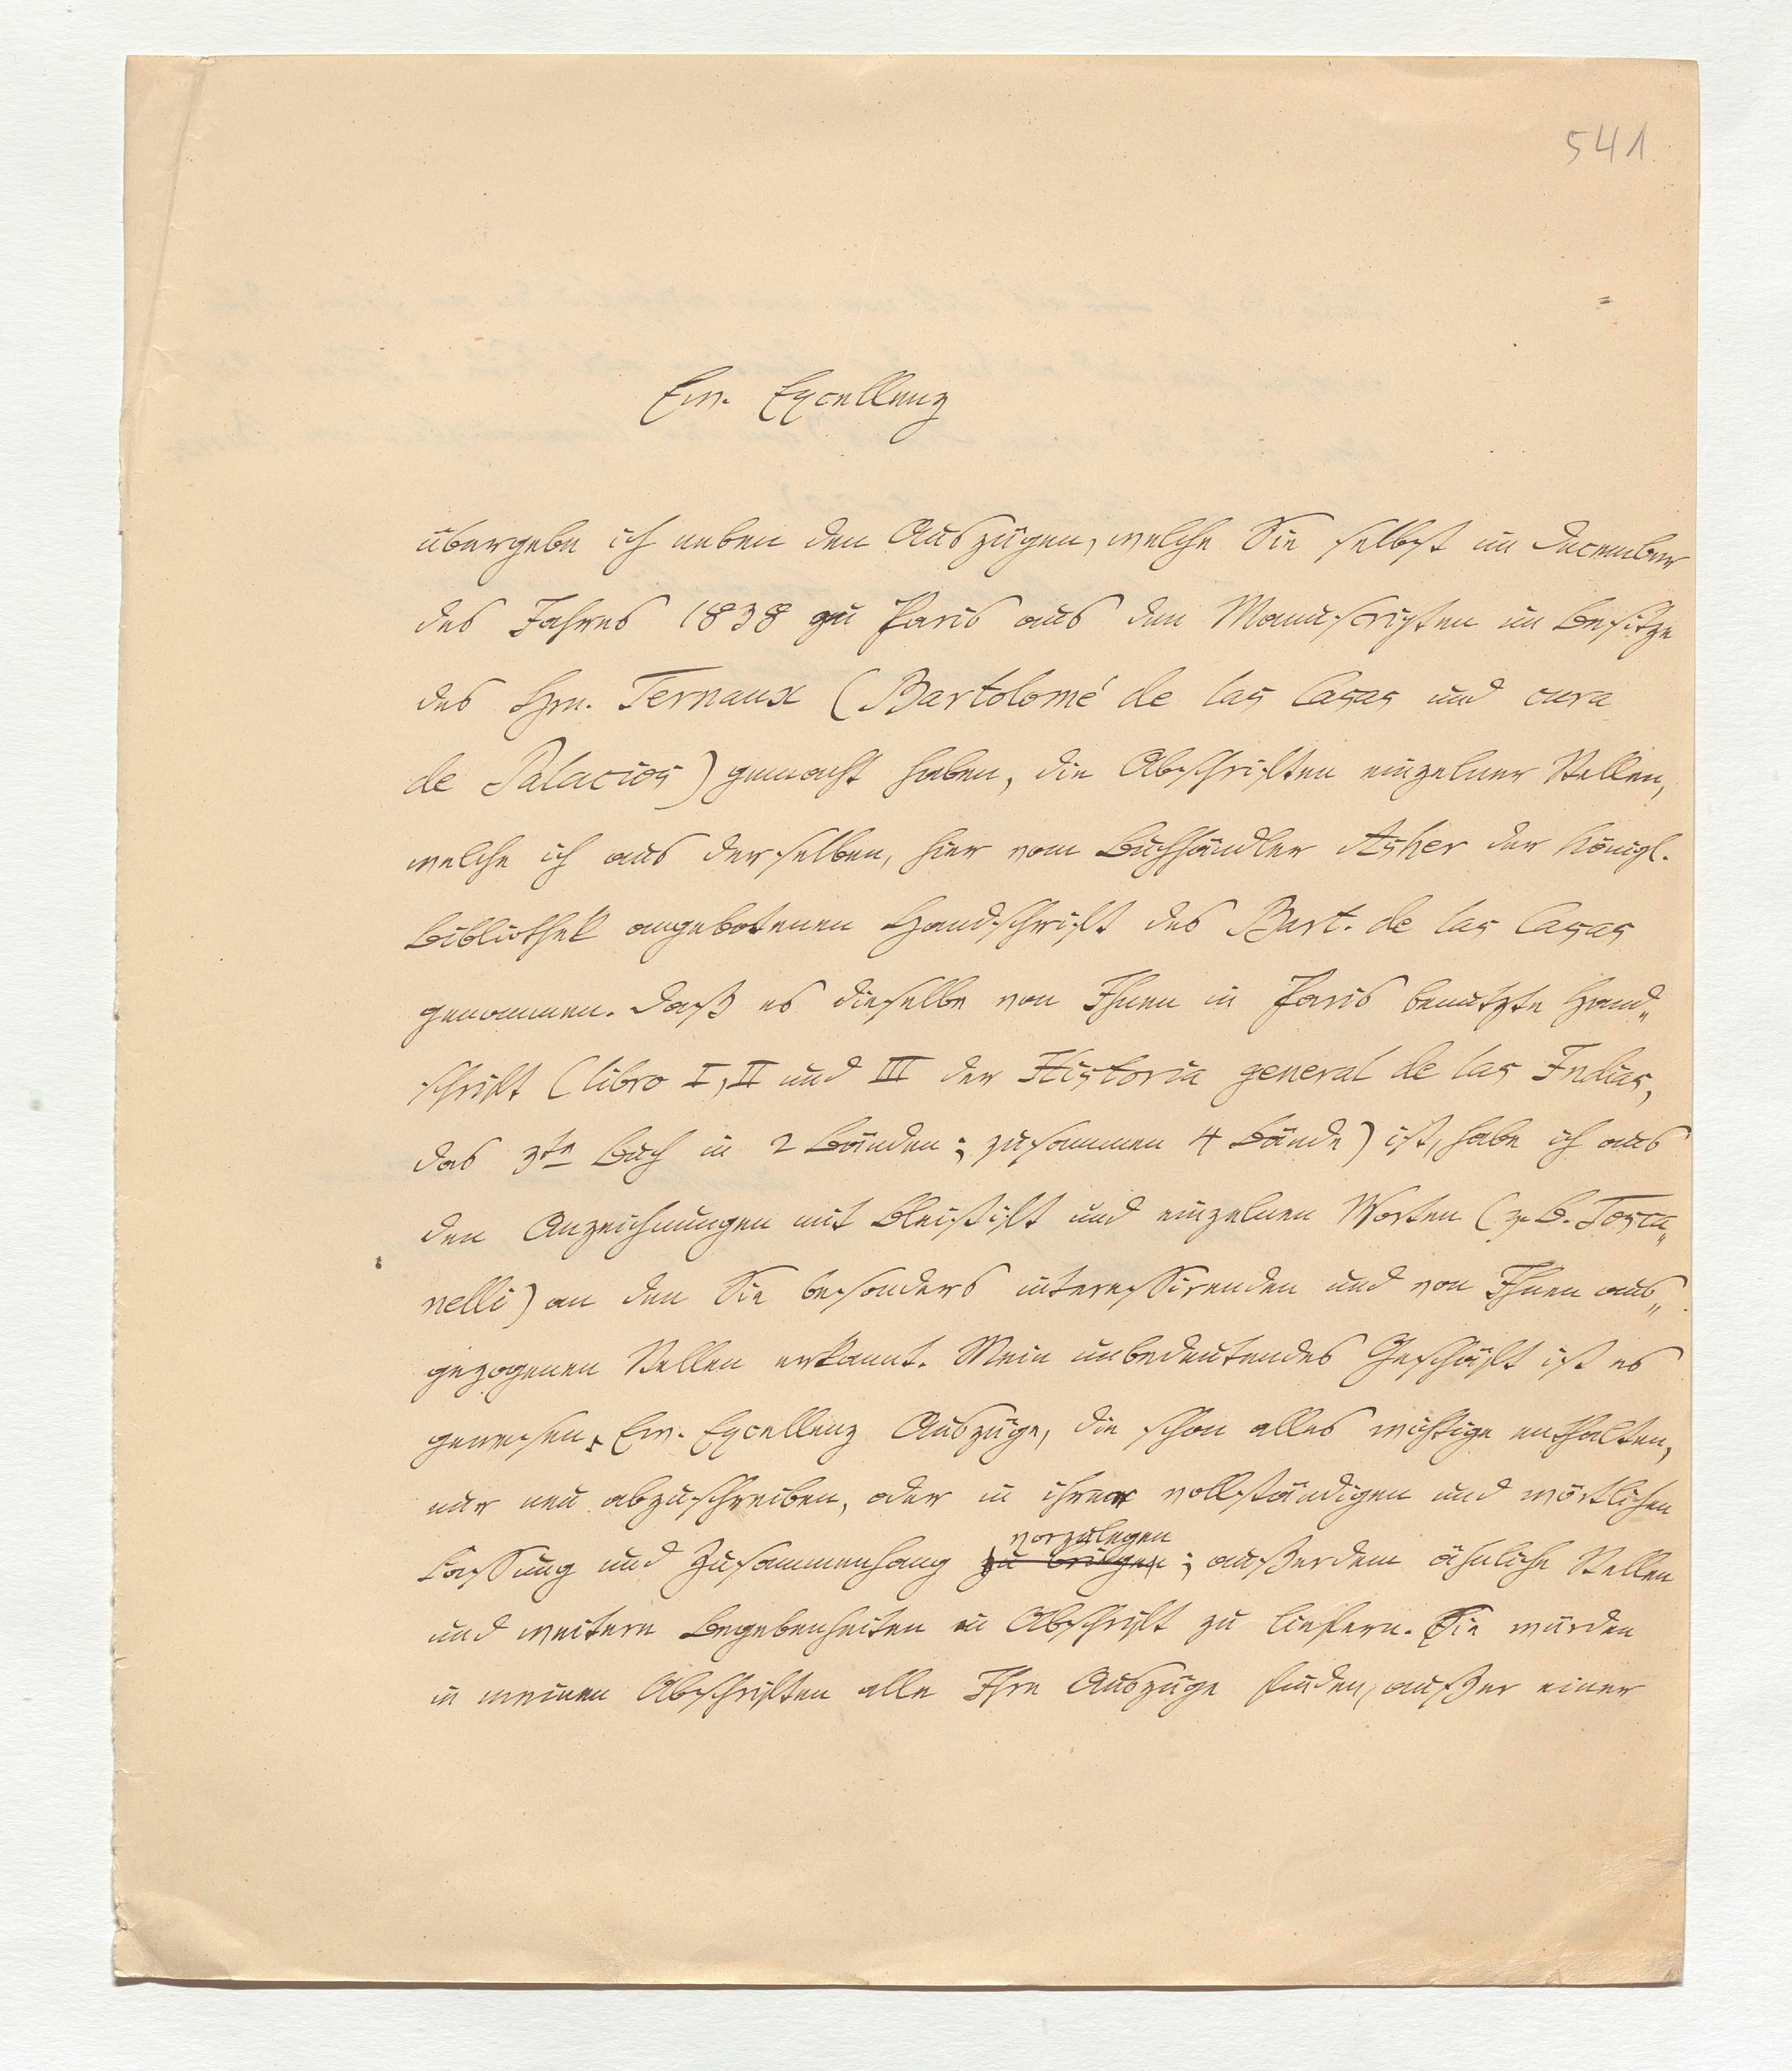 541
Ew. Excellenz
übergebe ich neben den Auszügen, welche Sie selbst im December
des Jahres 1838 zu Paris aus den Manuscripten im Besitze
des Hrn. Ternaux (Bartolomé de las Casas und cura
de Palacios) gemacht haben, die Abschriften einzelner Stellen,
welche ich aus derselben, hier vom Buchhändler Asher der Königl.
Bibliothek angebotenen Handschrift des Bart. de las Casas
genommen. Daß es dieselbe von Ihnen in Paris benutzte Hand„
schrift (libro I, II und III der Historia general de las Indias,
das 3te Buch in 2 Bänden; zusammen 4 Bände) ist, habe ich aus
den Anzeichnungen mit Bleistift und einzelnen Worten (z. B. Tosca„
nelli) an den Sie besonders interessirenden und von Ihnen aus„
gezogenen Stellen erkannt. Mein unbedeutendes Geschäft ist es
gewesen, Ew. Excellenz Auszüge, die schon alles wichtige enthalten,
nur neu abzuschreiben, oder in ihrer vollständigen und wörtlichen
vorzulegen
Fassung und Zusammenhang zu bringen; außerdem ähnliche Stellen
und weitere Begebenheiten in Abschrift zu liefern. Sie würden
in meinen Abschriften alle Ihre Auszüge finden, außer einer